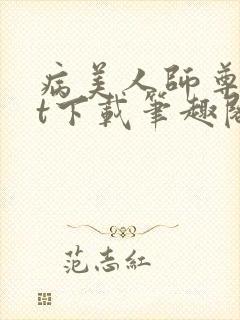 病美人師尊
t下載筆趣閣
范志紅